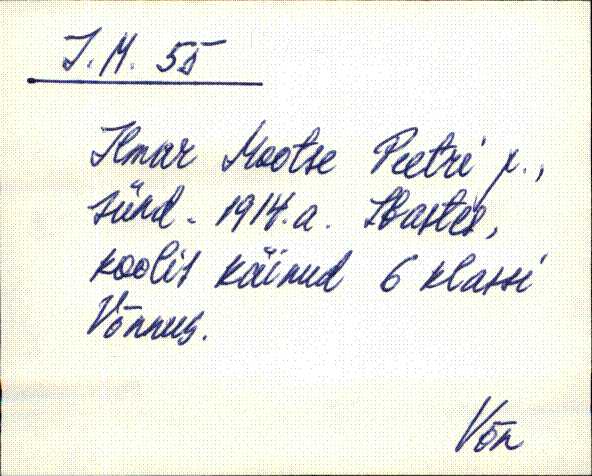 I. M. 55
Ilmar Mootse Peetri p.,
sünd. 1914. a. Ibastes,
koolis käinud 6 klassi
Võnnus.
Võn